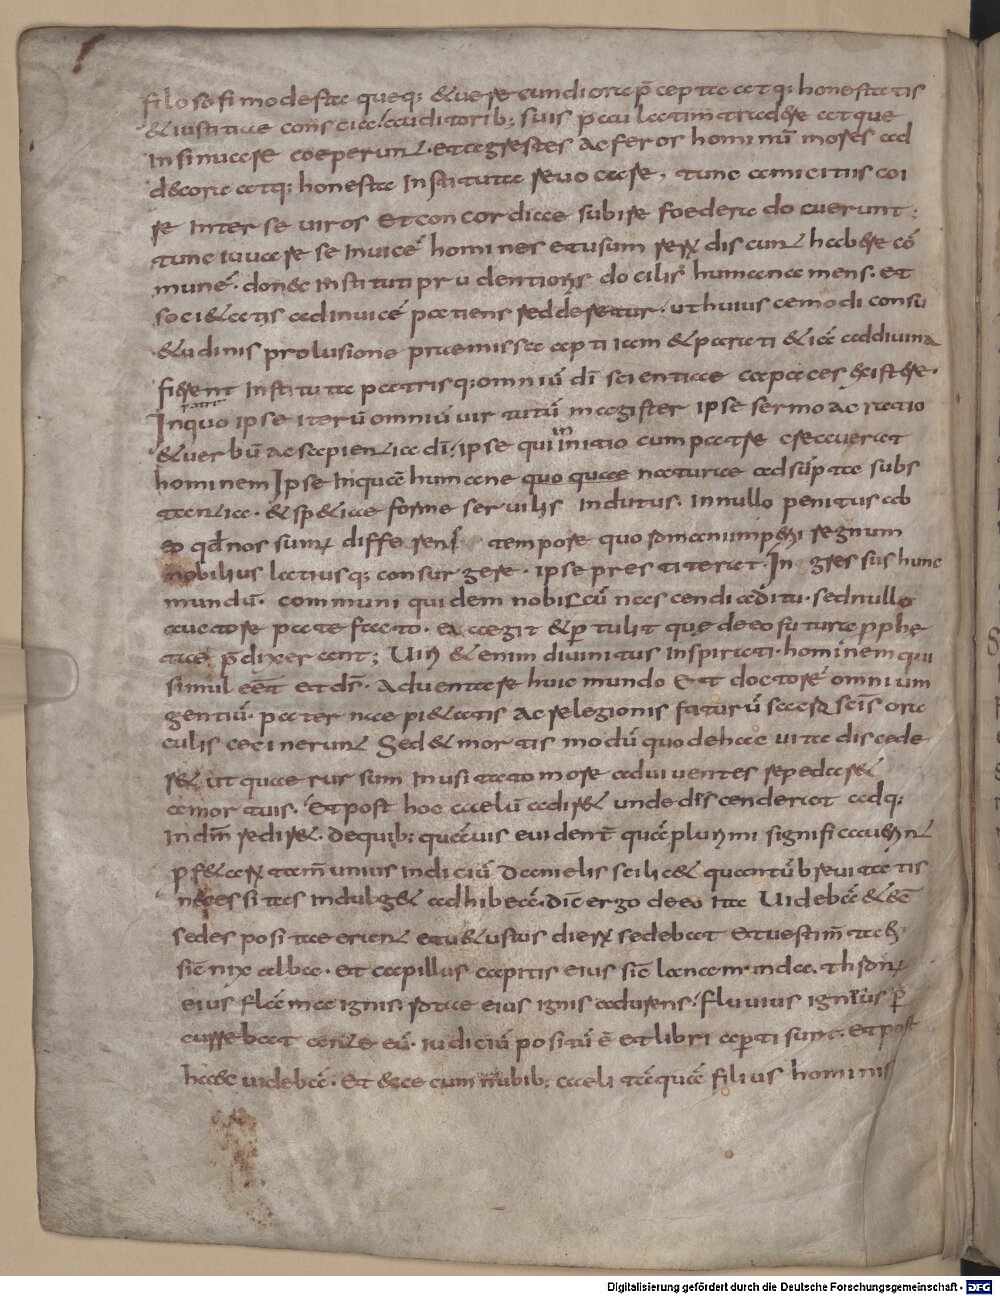 filosofi modesta queq; & uerecundiora p̄cepta atq; honestatis
& iustitiae conscia. auditorib; suis paulatim tradere atque
insinuare coeperunt. et agrestes ac feros hominū mores ad
decora atq; honesta instituta reuocare, tunc amicitiis coi
re inter se uiros et concordiae subire foedera docuerunt;
tunc iuuare se inuicē homines et usum rerū discunt habere cō
munē. donec instituti prudentioris docilis humana mens. et
societatis adinuicē patiens redderetur. ut huiuscemodi consu
&udinis prolusione praemissa apti iam & parati & iā ad diuina
fierent instituta patrisq; omniū dī scientiae capaces existere.
In quo ipse iterū omniū uirtutū magister ipse sermo ac ratio
& uerbū ac sapientia dī. ipse qui in initio cum patre creauerat
hominem Ipse inquā humane quoquae naturae adsūpta subs
tantia. & sp&iae forme seruilis indutus. in nullo penitus ab
eo qd̄ nos sumus differens tempore quo romanum p̄mi regnum
nobilius latiusq; consurgere. ipse presti terat. Ingressus hunc
mundū. communi quidem nobiscū nascendi aditu. sed nullo
auctore pate facto. ea egit & ꝑtulit quę de eo futura ꝓphę
tae p̄dixerant; Uiri & enim diuinitus inspirati. hominem qui
simul eēt et dī. aduentare huic mundo & doctorē omnium
gentiū. pater nae pi&atis ac relegionis faturū sacris scīs ora
culis cecinerunt Sed & mortis modū quo de hac uita discede
r& ut quae rursum inusitato more ad uiuentes repedar&
a mortuis. Et post hoc caelū adir& unde discenderat adq;
in dm̄ redir&. De quib; quāuis euidentē quā plurimi significauerint
ꝓf&arū tam̄ unius indiciū danielis scilic& quantū breuitatis
necessitas indulg& adhibeā. dic̄ ergo de eo ita Uidebā &ec̄
sedes positae erant et u&ustus dierū sedebat et uestim̄ta ei
sic̄ nix alba. et capillus capitis eius sic̄ lana munda. thronus
eius flāma ignis rota eius ignis adurens. fluuius igneus ꝑ
currebat ante eū. iudiciū positū ē et libri apti sunt. et post
haec uidebā. et ecce cum nubib; caeli tāquā filius hominis
Digitalisierung gefördert durch die Deutsche Forschungsgemeinschaft - DFG